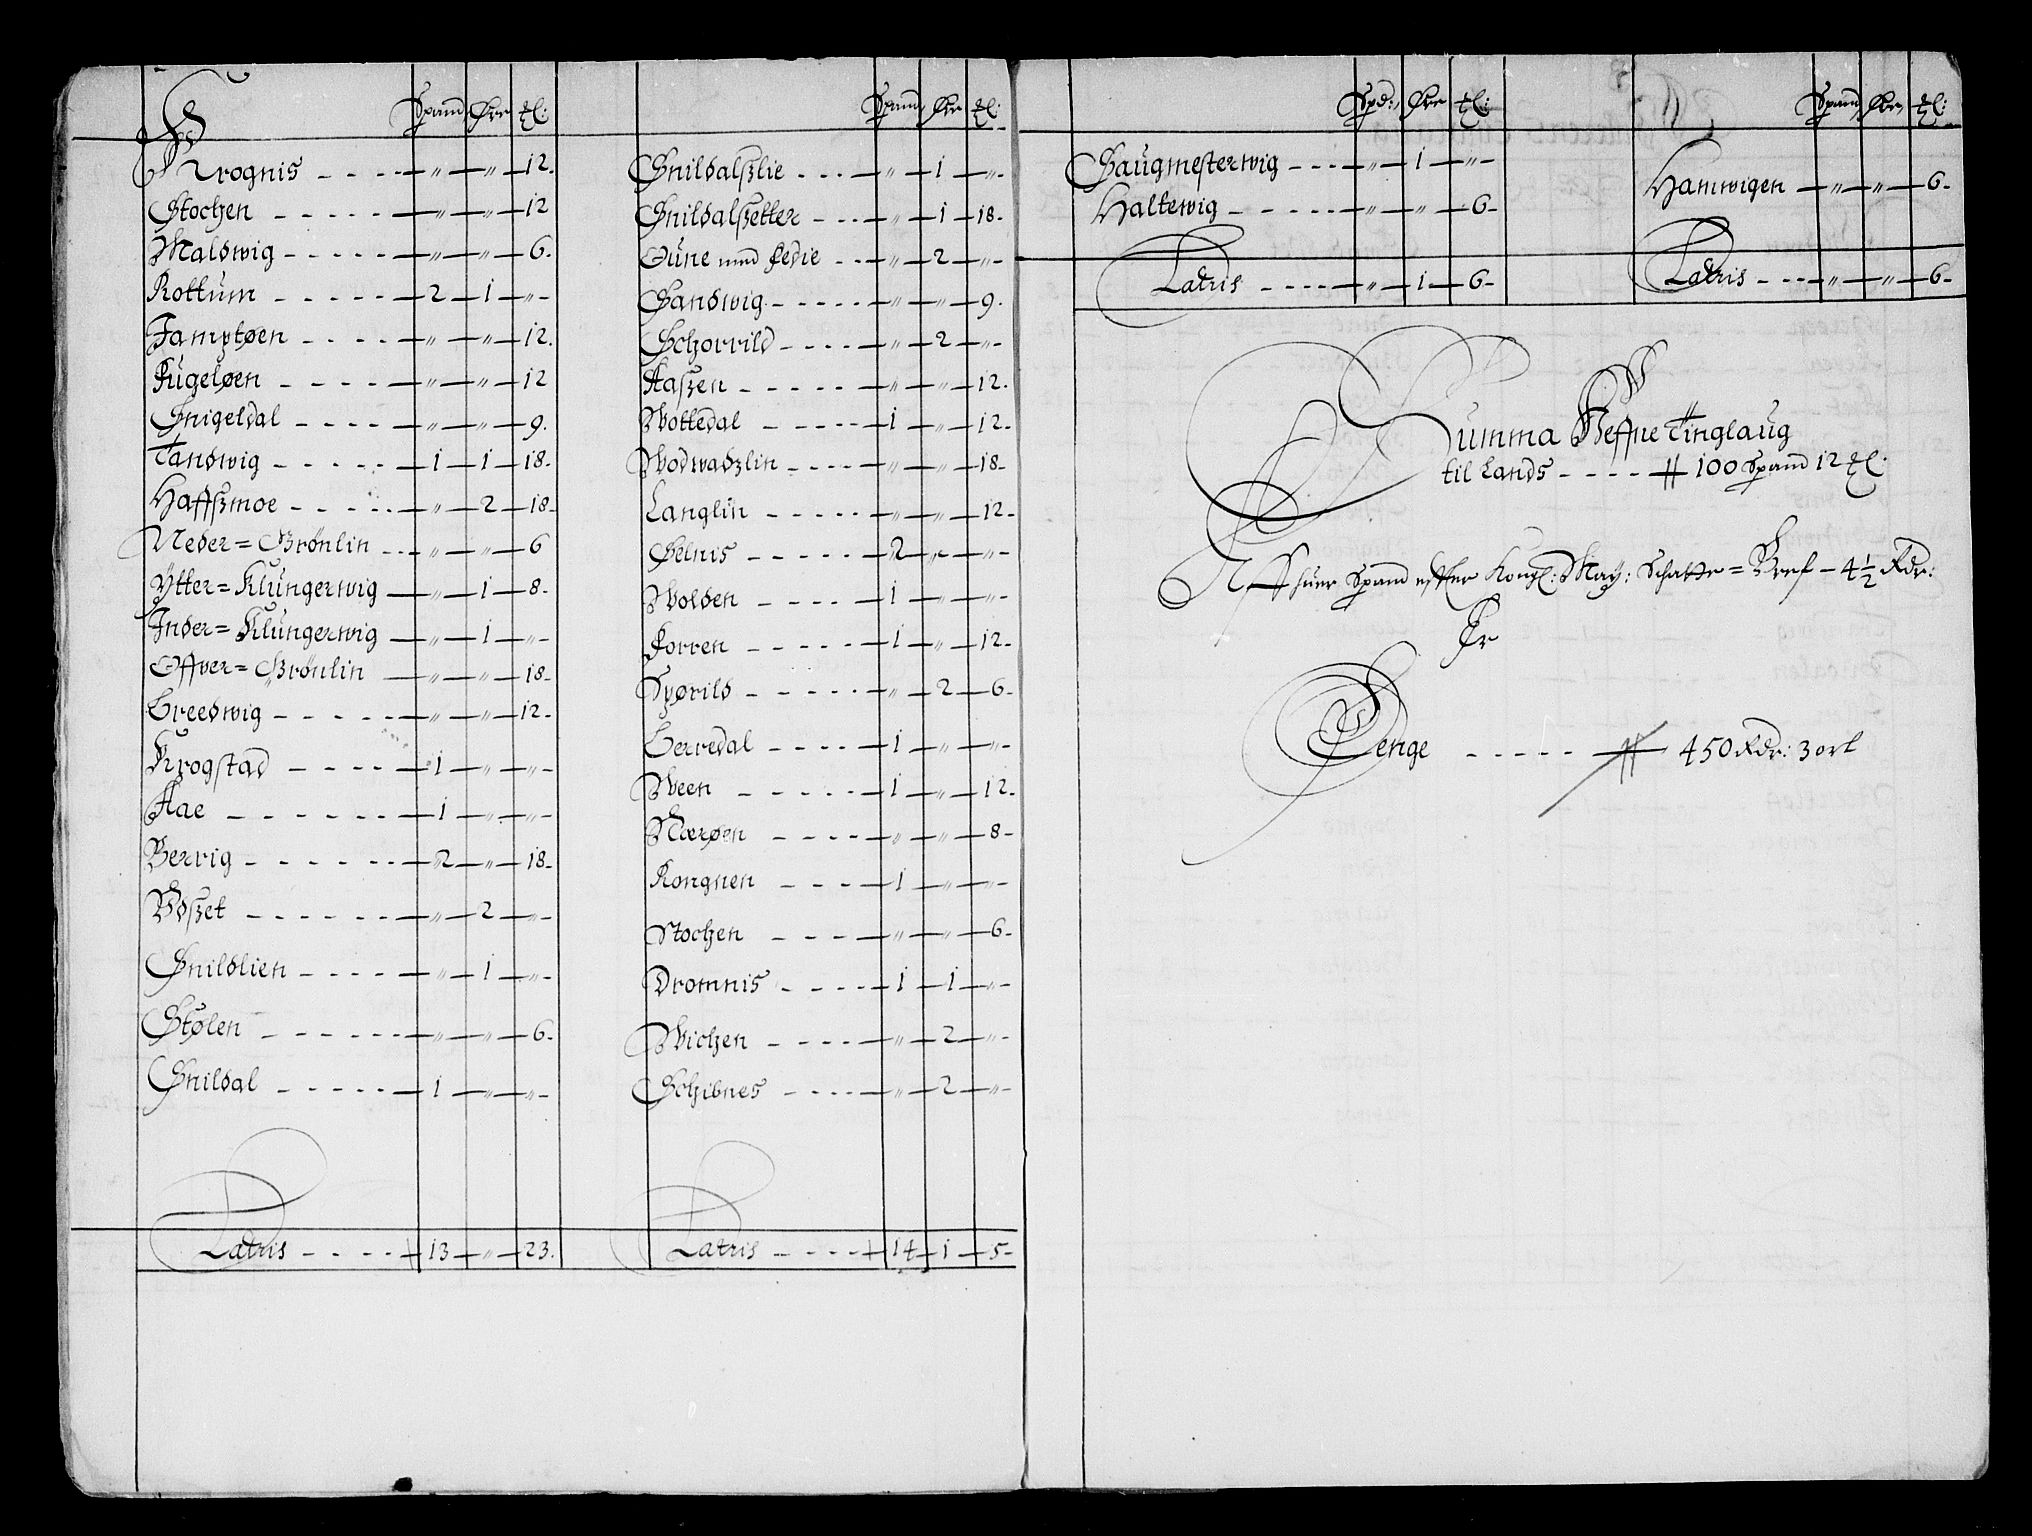 Spand Øre ℔:
Krognis - - - - „ „ 12.
Stochen - - - - - „ „ 12
Maldwig - - - - - „ „ 6.
Rottum - - - - - 2 1 „
Jamptøen - - - - „ „ 12.
Fugeløen - - - - „ „ 12
Snigeldal - - - - „ „ 9.
Tandwig - - - - - 1 1 18.
Haffszmoe - - - - - „ 2 18.
Neder= Brönlin - - - „ „ 6
Ytter= Klüngerwig „ 1 8.
Inder= Klüngerwig „ 1 „
Offver= Brönlin „ „ 18.
Breedwig - - - - - „ „ 12.
Krogstad - - - - 1 „ „
Aae - - - - - - 1 „ „
Berrig - - - - - - 2 „ 18.
Boszet - - - - - - „ 2 „
Snildlien - - - - „ 1 „
Stølen - - - - - - „ „ 6.
Snildal - - - - - 1 „ „
Latris - - - - 13 „ 23.
Spand Øre ℔:
Snildalszlie - - - - „ 1 „
Snildalszetter - - - - „ 1 18.
Oüne med Fedie - - - „ 2 „
Sandwig - - - - - „ „ 9.
Schorrild - - - - - „ 2 „
Aaszen - - - - - - „ „ 12.
Wottedal - - - - - 1 „ 12.
Wodwadzlin - - - - „ „ 18.
Langlin - - - - - „ „ 12.
Selnis - - - - - - 2 „ „
Wolden - - - - - 1 „ „
Forren - - - - - 1 „ 12.
Spørild - - - - - „ 2 6.
Berredal - - - - - 1 „ „
Ween - - - - - - 1 „ 12.
Nærøen - - - - - „ „ 8.
Rongnen - - - - 1 „ „
Stochen - - - - - „ „ 6.
Dromnis - - - - - 1 1 „
Wichen - - - - - „ 2 „
Schibnes - - - - - „ 2 „
Latris - - - - - 14 1 5.
Spd: Øre ℔:
Saugmesterwig - - - - „ 1 „
Haltewig - - - - - - „ „ 6.
Latris - - - - - „ 1 6.
Spand Øre ℔:
Hamwigen „ „ 6.
Latris - - - - „ „ 6.
Summa Heffne Tinglaug
til Lands - - - - ⸗ 100 Spand 12 ℔.
Aff huer Spand effter Kongl: May: Schatte= Bref – 4½ Rdr:
Er
Penge - - - - - ⸗ 450 Rdr: 3 ort